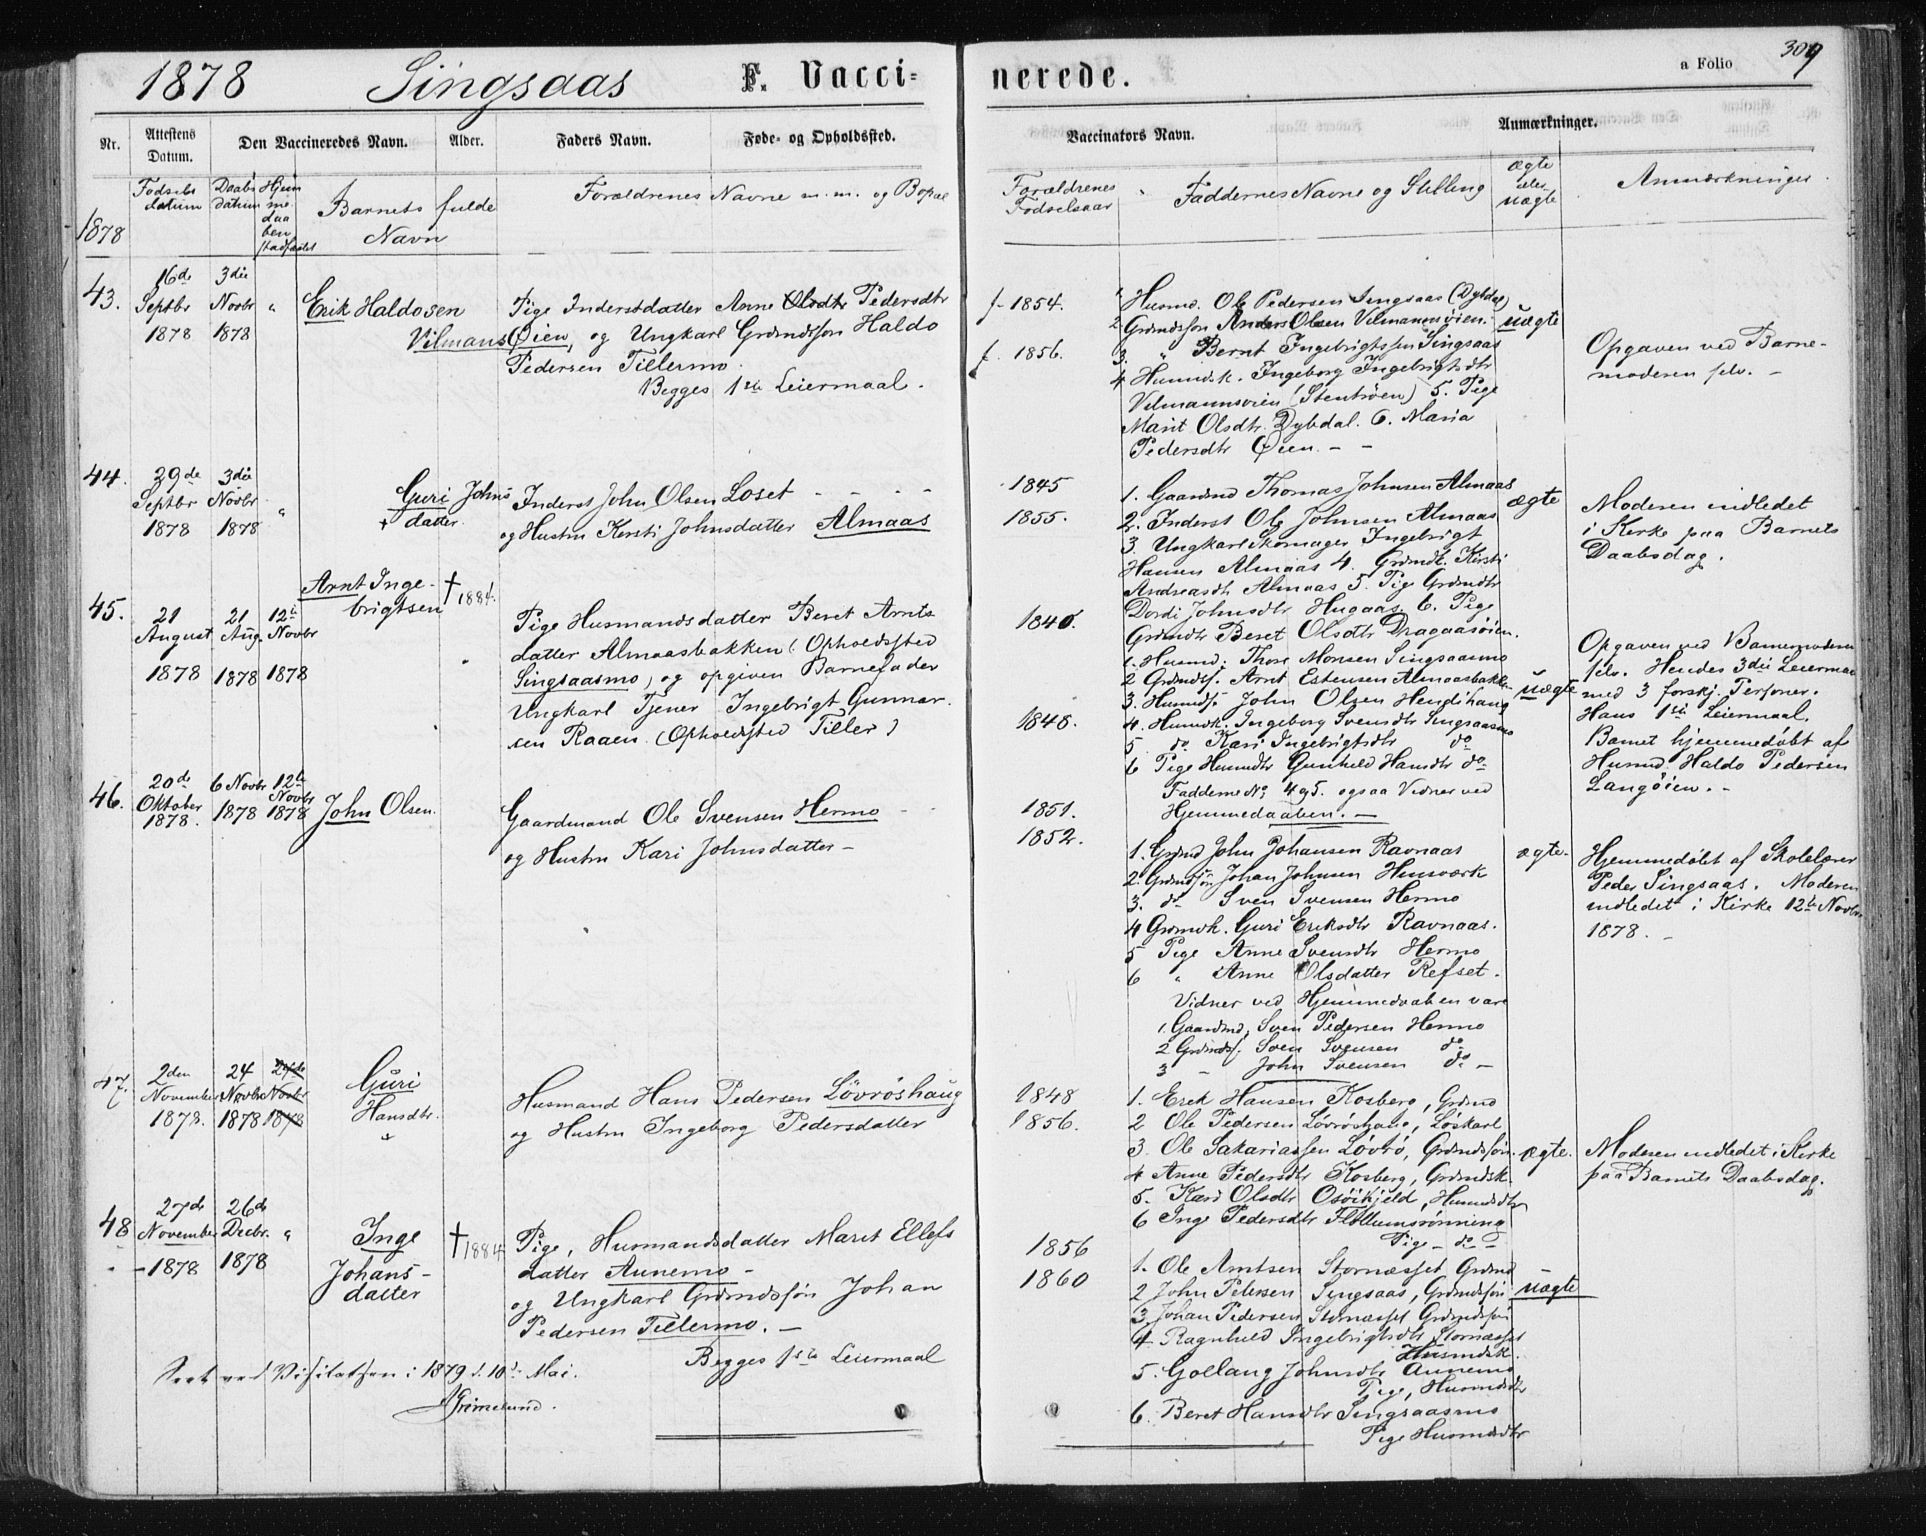 1878 Singsaas F. Vacci-
nerede.
a Folio 309
Nr.
Attestens
Datum.
Den Vaccineredes Navn.
Alder.
Faders Navn.
Føde- og Opholdssted.
Vaccinators Navn.
Anmærkninger.
1878
Fødsels
datum
Daabs
Datum
Hjem
me
daa
ben
stadfæstet
Barnets fulde
Navn
Forældrenes Navne m. m. og Bopæl
Forældrenes
Fødselsaar
Faddernes Navne og Stilling
ægte
eller
uægte
Anmærkninger
43.
16de
Septbr
1878
3die
Novbr
1878
"
Erik Haldosen
Vilmans Øien
Pige Inderstdatter Anne Olsdtr Pedersdtr
og Ungkarl Grdmdssøn Haldo
Pedersen Tillermo.
Begges 1ste Leiermaal.
f. 1854.
f. 1856.
1 Husmd. Ole Pedersen Singsaas (Dybdal)
2 Grdmdssøn Anders Olsen Vilmannsøien.
3. " Bernt Ingebrigtssen Singsaas
4 Husmdsk. Ingeborg Ingebrigtsdtr
Vilmannsøien (Stentrøen) 5. Pige
Marit Olsdtr. Dybdal. 6. Maria
Pedersdtr Øien. - -
uægte
Opgaven ved Barne-
moderen selv. -
44.
29de
Septbr
1878
3die
Novbr
1878
"
Guri Johns
datter.
Inderst John Olsen Loset - - - -
og Hustru Kersti Johnsdatter Almaas
1845
1855.
1. Gaardmd Thomas Johnsen Almaas
2. Inderst Ole Johnsen Almaas
3. Ungkarl Skomager Ingebrigt
Hansen Almaas 4. Grdmdk. Kirsti
Andreasdtr Almaas 5. Pige Grdmdtr
Dordi Johnsdtr Hugaas. 6. Pige
Grdmdtr Beret Olsdtr Dragaasøien.
ægte
Moderen indledet
i Kirke paa Barnets
Daabsdag.
45.
21
August
1878
21
Aug.
1878
12te
Novbr
1878
Arnt Inge-
brigtsen
† 1884.
Pige Husmandsdatter Beret Arnts
datter Almaasbakken (Opholdssted
Singsaasmo) og opgiven Barnefader
Ungkarl Tjener Ingebrigt Gunnar
sen Raaen (Opholdssted Tiller)
1840.
1848.
1. Husmd. Thore Monsen Singsaasmo
2 Grdmdsf. Arnt Estensen Almaasbakken
3. Husmdsf. John Olsen Hendihaug
4. Husmdk. Ingeborg Svensdtr Singsaasmo
5. do Kari Ingebrigtsdtr do
6 Pige Husmdtr Gunhild Hansdtr do
Fadderne No: 4 og 5. ogsaa Vidner ved
Hjemmedaaben. -
uægte
Opgaven ved Barnemoderen
selv. Hendes 3die Leiermaal
med 3 forskj. Personer.
Hans 1ste Leiermaal.
Barnet hjemmedøbt af
Husmd. Haldo Pedersen
Langøien. -
46.
20de
Oktober
1878.
6 Novbr
1878
12te
Novbr
1878
John Olsen.
Gaardmand Ole Svensen Hermo
og Hustru Kari Johnsdatter -
1851.
1852.
1. Grdmd John Johansen Ravnaas
2. Grdmdssøn Johan Johnsen Hensværk
3. do Sven Svensen Hermo
4 Grdmdk. Guri Eriksdtr Ravnaas.
5 Pige Anne Svensdtr Hermo
6 " Anne Olsdatter Refset.
Vidner ved Hjemmedaaben vare
1. Gaardmd, Sven Pedersen Hermo
2 Grdmdsf. Sven Svensen do
3 - John Svensen do -
ægte.
Hjemmedøbt af Skolelærer
Peder Singsaas. Moderen
indledet i Kirke 12te Novbr.
1878. -
47.
2den
November
1878.
24
Novbr
1878
24de
Novbr
1878
Guri
Hansdtr.
Husmand Hans Pedersen Løvrøshaug
og Hustru Ingeborg Pedersdatter
1848
1856.
1. Erik Hansen Kosberg, Grdmd
2 Ole Pedersen Løvrøshaug, Løskarl
3. Ole Sakariassen Løvrø, Grdmdssøn.
4 Anne Pedersdtr Kosberg, Grdmdsk.
5. Kari Olsdtr Osøikjeld, Husmdsdtr
6 Inge Pedersdtr Flottumsrønning
Pige - do -
ægte.
Moderen indledet i Kirke
paa Barnets Daabsdag.
48
27de
November
- - 1878
26de
Decbr.
1878
"
Inge
Johans-
datter
† 1884
Pige, Husmandsdatter Marit Ellefs
datter Aunemo -
og Ungkarl Grdmdssøn Johan
Pedersen Tillermo. -
Begges 1ste Leiermaal
1856
1860
1. Ole Arntsen Stornæsset Grdmd
2 John Petersen Singsaas, Grdmdssøn
3 Johan Pedersen Stornæsset Grdmdssøn
4 Ragnhild Ingebrigtsdtr Stornæsset
Husmdsk.
5. Gollaug Johnsdtr Aunemo
Pige, Husmdsdtr
6. Beret Hansdtr Singsaasmo
Pige Husmdsdtr
uægte
Seet ved Visitatsen i 1879 d. 10de Mai.
AGrimelund.